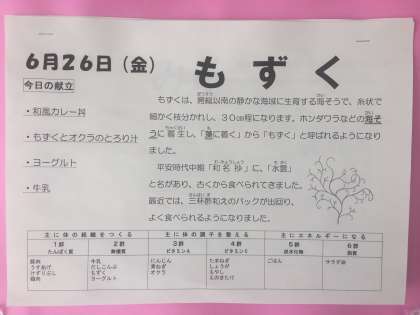 6月26日（金）
もずく
今日の献立
・和風カレー丼
・もずくとオクラのとろり汁
・ヨーグルト
・牛乳
もずくは、 以南の静かな海域に生育する海そうで、糸状で
細かく枝分かれし、30㎝程になります。ホンダワラなどの海そ
うに着生し、「藻に着く」から「もずく」と呼ばれるようになり
ました。
平安時代中期「和名抄」に、「水雲」
と名があり、古くから食べられてきました。
最近では、三杯酢和えのパックが出回り、
よく食べられるようになりました。
主に体の組織をつくる 主に体の調子を整える 主にエネルギーになる
1群 2群 3群 4群 5群 6群
たんぱく質 無機質 ビタミンA ビタミンC 炭水化物 脂質
鶏肉 牛乳 にんじん たまねぎ ごはん サラダ油
うずあげ だしこんぶ 葉ねぎ しょうが
けずりぶし もずく オクラ もやし
豚肉 ヨーグルト えのきたけ